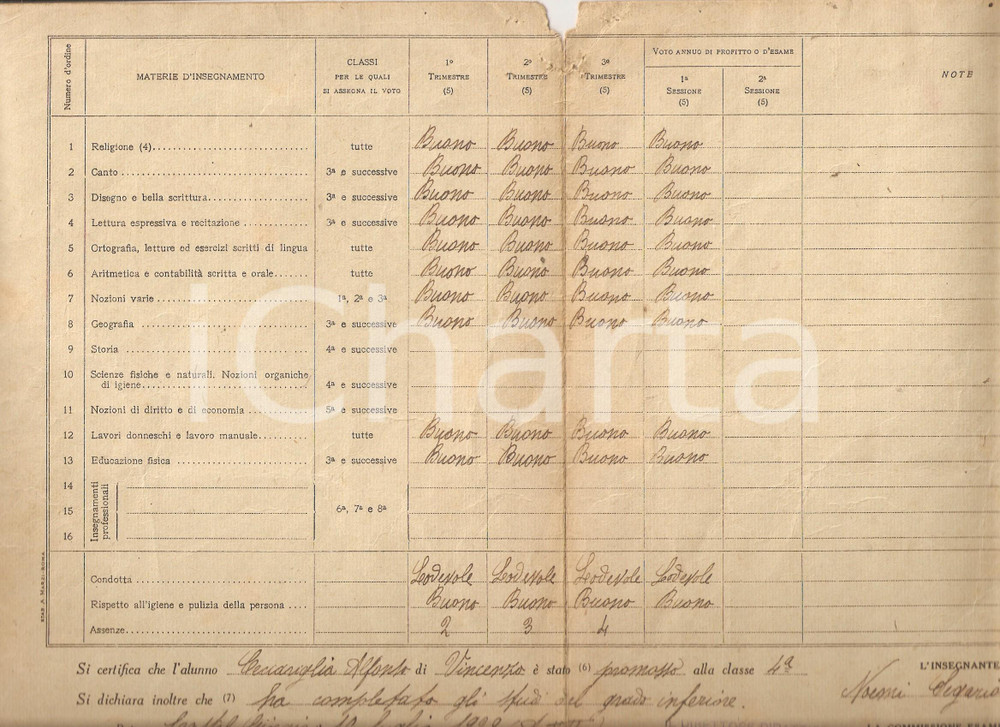 Numero d'ordine MATERIE D'INSEGNAMENTO CLASSI PER LE QUALI SI ASSEGNA IL VOTO 1º TRIMESTRE (5) 2º TRIMESTRE (5) 3º TRIMESTRE (5) VOTO ANNUO DI PROFITTO O D'ESAME 1ª SESSIONE (5) 2ª SESSIONE (5) NOTE
1 Religione (4) tutte Buono Buono Buono Buono
2 Canto 3ª e successive Buono Buono Buono Buono
3 Disegno e bella scrittura 3ª e successive Buono Buono Buono Buono
4 Lettura espressiva e recitazione 3ª e successive Buono Buono Buono Buono
5 Ortografia, letture ed esercizi scritti di lingua tutte Buono Buono Buono Buono
6 Aritmetica e contabilità scritta e orale tutte Buono Buono Buono Buono
7 Nozioni varie 1ª, 2ª e 3ª Buono Buono Buono Buono
8 Geografia 3ª e successive Buono Buono Buono Buono
9 Storia 4ª e successive
10 Scienze fisiche e naturali. Nozioni organiche
di igiene 4ª e successive
11 Nozioni di diritto e di economia 5ª e successive
12 Lavori donneschi e lavoro manuale tutte Buono Buono Buono Buono
13 Educazione fisica 3ª e successive Buono Buono Buono Buono
14
15 Insegnamenti professionali 6ª, 7ª e 8ª
16
Condotta Lodevole Lodevole Lodevole Lodevole
Rispetto all'igiene e pulizia della persona Buono Buono Buono Buono
Assenze 2 3 4
Si certifica che l'alunno Alfonso di Vincenzo è stato (6) promosso alla classe 4ª L'INSEGNANTE
Si dichiara inoltre che (7) ha completato gli studi del grado inferiore. Noemi
iCharta